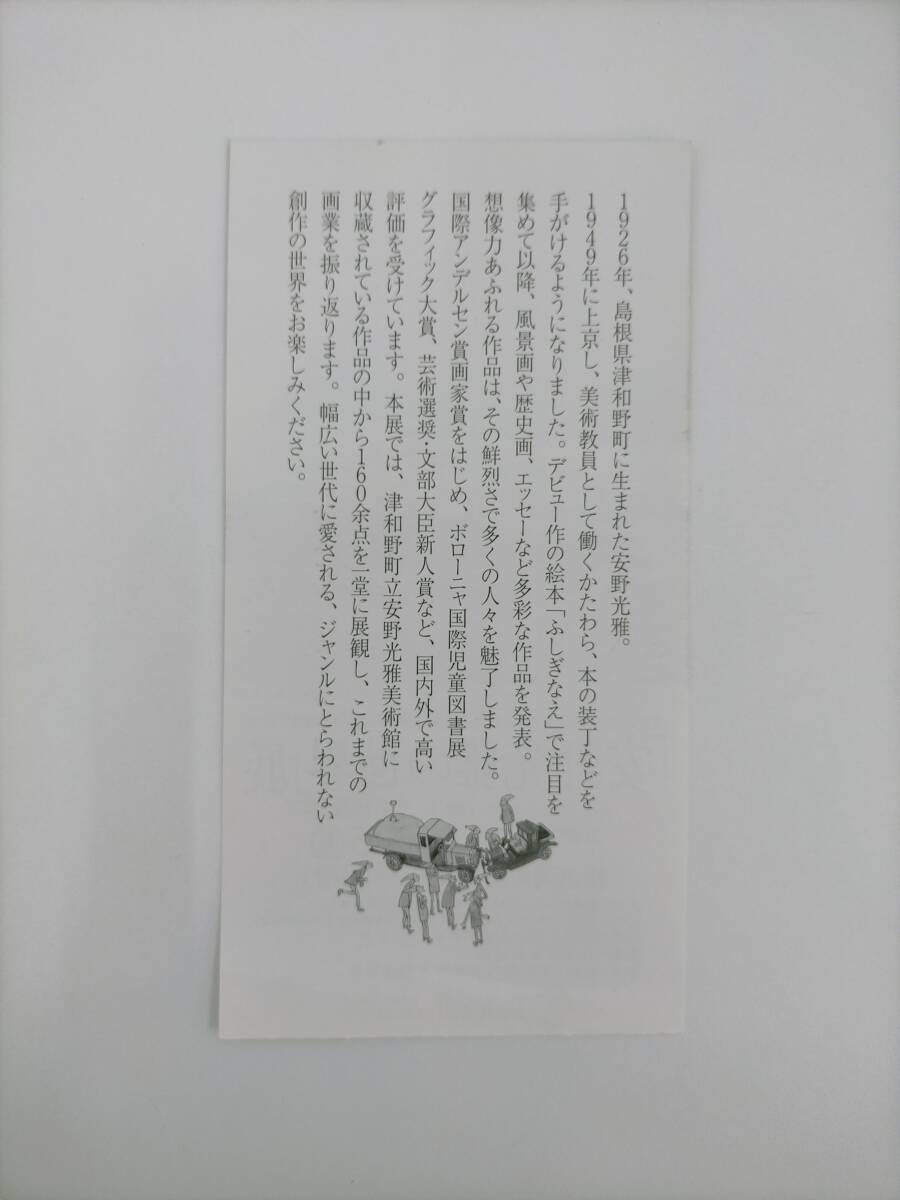 1926年、島根県津和野町に生まれた安野光雅。
1949年に上京し、美術教員として働くかたわら、本の装丁などを
手がけるようになりました。デビュー作の絵本「ふしぎなえ」で注目を
集めて以降、風景画や歴史画、エッセーなど多彩な作品を発表。
想像力あふれる作品は、その鮮烈さで多くの人々を魅了しました。
国際アンデルセン賞画家賞をはじめ、ボローニャ国際児童図書展
グラフィック大賞、芸術選奨・文部大臣新人賞など、国内外で高い
評価を受けています。本展では、津和野町立安野光雅美術館に
収蔵されている作品の中から160余点を一堂に展観し、これまでの
画業を振り返ります。幅広い世代に愛される、ジャンルにとらわれない
創作の世界をお楽しみください。